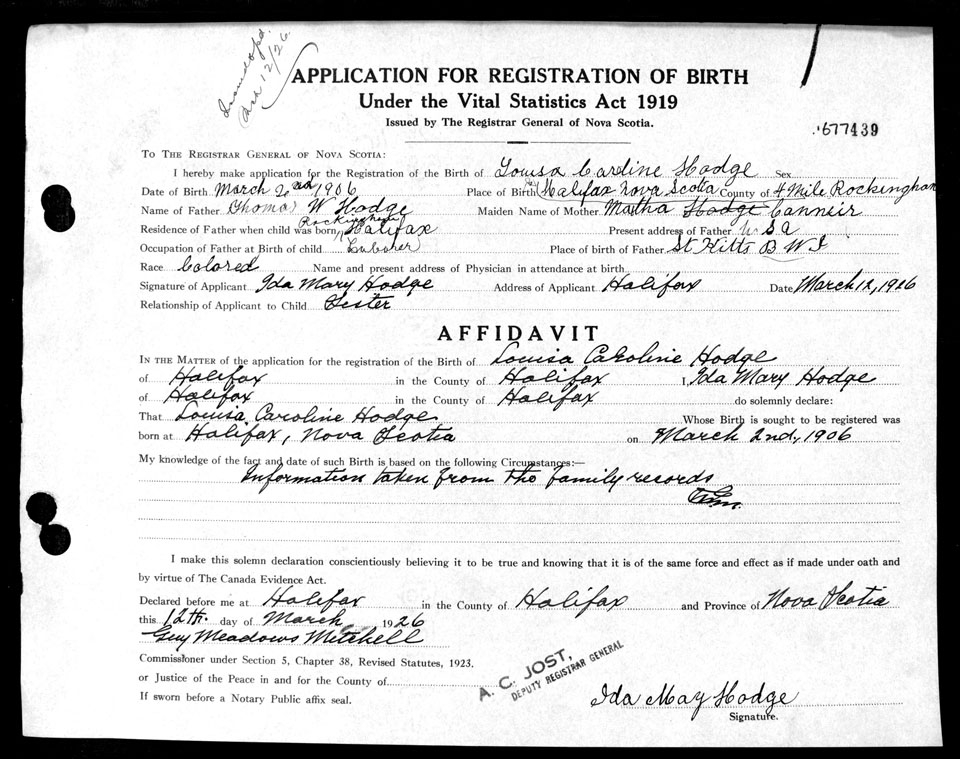 Mch 12/26
APPLICATION FOR REGISTRATION OF BIRTH
Under the Vital Statistics Act 1919
Issued by The Registrar General of Nova Scotia.
677439
TO THE REGISTRAR GENERAL OF NOVA SCOTIA:
I hereby make application for the Registration of the Birth of Louisa Cardine Hodge Sex
Date of Birth March 2nd 1906 Place of Birth Halifax Nova Scotia County of 4 Mile Rockingham
Name of Father Thomas W Hodge Maiden Name of Mother Martha Hodge
Rockingham
Residence of Father when child was born Halifax Present address of Father U S A
Occupation of Father at Birth of child Laborer Place of birth of Father St Kitts B W I
Race Colored Name and present address of Physician in attendance at birth
Signature of Applicant Ida Mary Hodge Address of Applicant Halifax Date March 12, 1926
Relationship of Applicant to Child Sester
AFFIDAVIT
IN THE MATTER of the application for the registration of the Birth of Louisa Caroline Hodge
of Halifax in the County of Halifax I, Ida Mary Hodge
of Halifax in the County of Halifax do solemnly declare:
That Louisa Caroline Hodge Whose Birth is sought to be registered was
born at Halifax, Nova Scotia on March 2nd, 1906
My knowledge of the fact and date of such Birth is based on the following Circumstances:—
Information taken from the family records
I make this solemn declaration conscientiously believing it to be true and knowing that it is of the same force and effect as if made under oath and
by virtue of The Canada Evidence Act.
Declared before me at Halifax in the County of Halifax and Province of Nova Scotia
this 12th. day of March 1926
Guy Meadows Mitchell
Commissioner under Section 5, Chapter 38, Revised Statutes, 1923.
or Justice of the Peace in and for the County of
If sworn before a Notary Public affix seal.
A. C. JOST,
DEPUTY REGISTRAR GENERAL
Ida May Hodge
Signature.